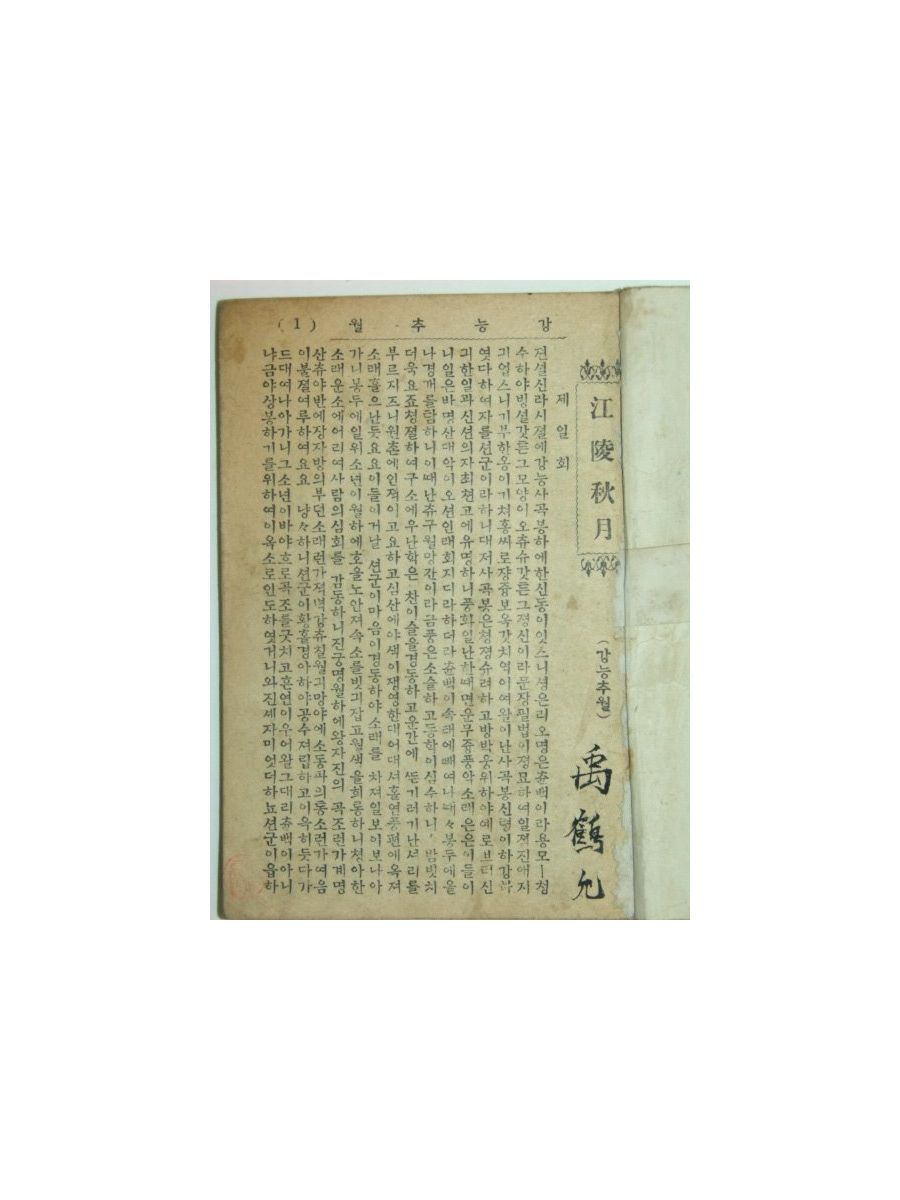 (1) 강능추월
江陵秋月
(강능추월)
禹鶴允
제일회
젼셜신라시졀에강능사곡봉하에한신동이잇스니셩은리오명은츈백이라용모ㅣ쳥
수하야빙셜갓튼그모양이오츄슈갓튼그졍신이라문장필법이졍묘하여일졈진애지
긔업스니기부하옹이기쳐홍씨로쟝즁보옥갓치역이여왈이난사곡봉신령이하강
엿다하여자를션군이라하니대저사곡봉은쳥졍슈려하고방박웅위하야예로브터신
긔한일과신션의자최쳔고에유명하니풍화일난한때면운무즁풍악소래은은이들이
니일은바명산대악이오션인래회지디라하더라츈백이속태에빼여나때々봉두에올
나경개를탐하니이때난츄구월망간이라금풍은소슬하고등학이심수하니밤빗치
더욱요죠쳥졀하여구소에우난학은찬이슬을경동하고운간에뜬기러기난셔리를
부르지즈니원촌에인젹이고요하고심산에야색이쟁영한대어대셔홀연풍편에옥져
소래흘으난듯요요이들이거날션군이마음이경동하야소래를차져일보이보나아
가니봉두에일위소년이월하에호을노안져속소를빗긔잡고월색을희롱하니쳣아한
소래운소에어리여사람의심회를감동하니진궁명월하에왕자진의곡조런가계명
산츄야반에장자방의부던소래런가젹벽강츄칠월긔망야에소동파의퉁소런가여음
이불졀여루하여요요냥々하니션군이황홀경아하야공수져립하고이윽히듯다가
드대여나아가니그소년이바야흐로곡조를긋치고흔연이우어왈그대리츈백이아니
냐금야상봉하기를위하여이옥소로인도하엿거니와진셰자미엇더하뇨션군이읍하